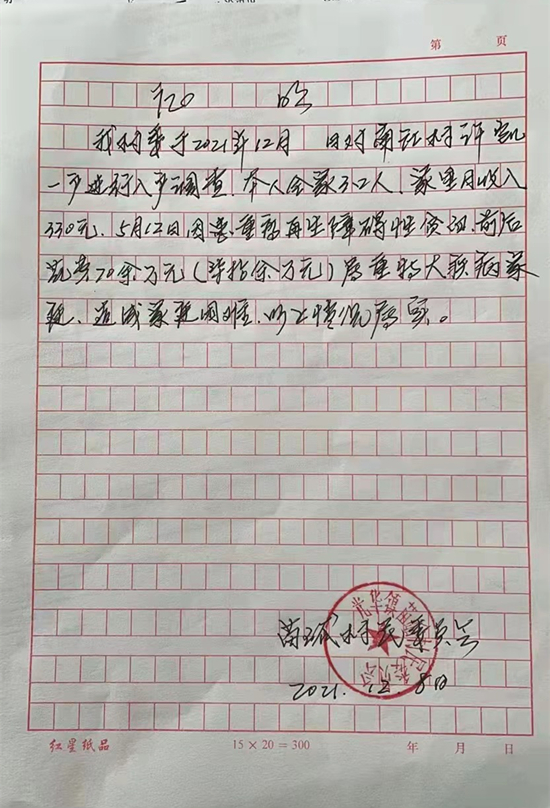 第 页
证 明
我村委于2021年12月 日对南 村许凯
一户进行入户调查,本人全家32人,家里月收入
330元、5月12日因患重型再生障碍性贫血,前后
花费70余万元(柒拾余万元)属重特大疾病家
庭、造成家庭困难,以上情况属实。
村民委员会
2021.12.8日
红星纸品 15×20=300 年 月 日